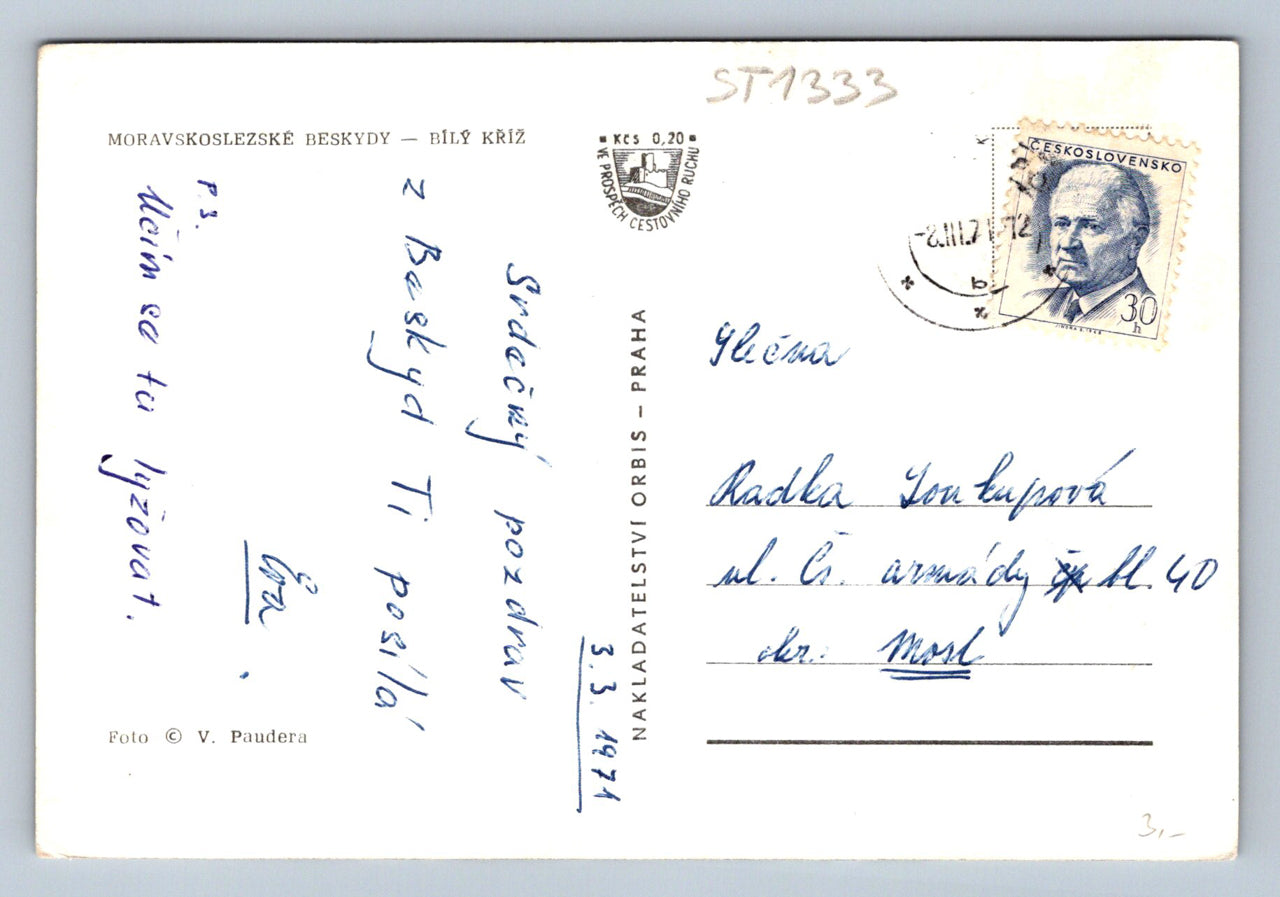 ST1333
MORAVSKOSLEZSKÉ BESKYDY — BÍLÝ KŘÍŽ
Kčs 0,20
VE PROSPĚCH CESTOVNÍHO RUCHU
ČESKOSLOVENSKO
30
h
-8.III.71-12
b
3.3.1971
Srdečný pozdrav
z Beskyd Ti posílá
Eva.
P.S.
Učím se tu lyžovat.
NAKLADATELSTVÍ ORBIS – PRAHA
Slečna
Radka Soukupová
ul. Čs. armády bl. 40
okr. Most
Foto © V. Paudera
3,-